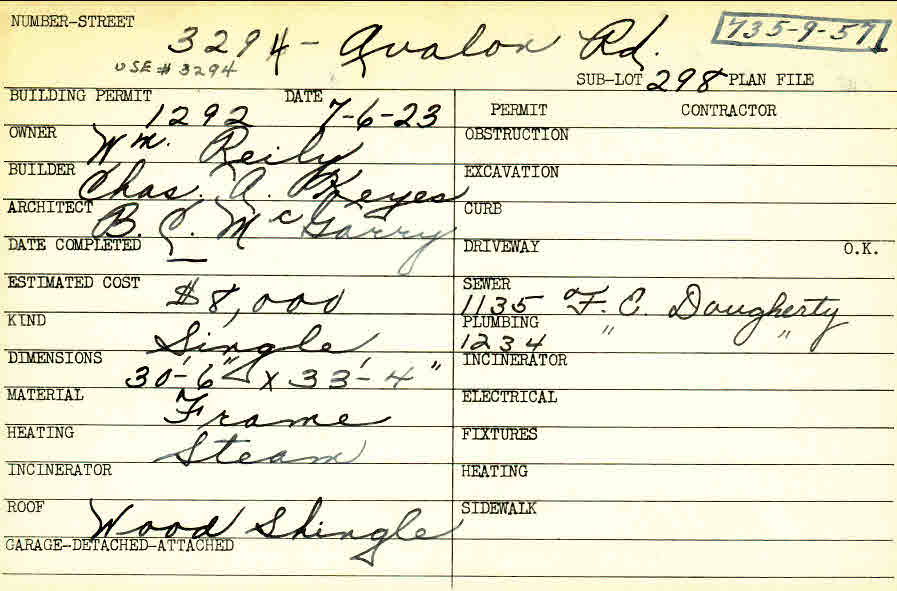 NUMBER-STREET
3294 - Avalon Rd.
735-9-57
USE # 3294
SUB-LOT 298 PLAN FILE
BUILDING PERMIT 1292 DATE 7-6-23
PERMIT CONTRACTOR
OWNER Wm. Reily
OBSTRUCTION
BUILDER Chas. A. Keyes
EXCAVATION
ARCHITECT B. C. McGarry
CURB
DATE COMPLETED —
DRIVEWAY O.K.
ESTIMATED COST $8,000
SEWER 1135 F. E. Dougherty
KIND Single
PLUMBING 1234 " "
DIMENSIONS 30'-6" x 33'-4"
INCINERATOR
MATERIAL Frame
ELECTRICAL
HEATING Steam
FIXTURES
INCINERATOR
HEATING
ROOF Wood Shingle
SIDEWALK
GARAGE-DETACHED-ATTACHED